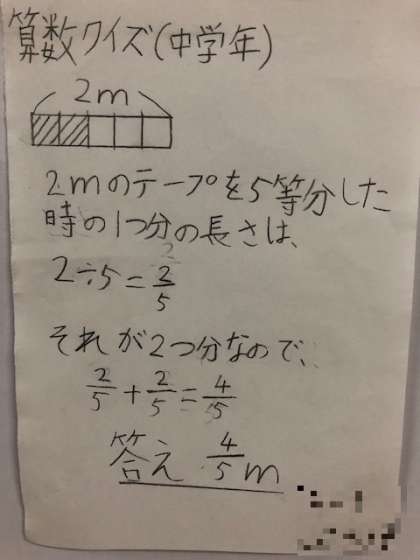 算数クイズ(中学年)
2m
2mのテープを5等分した
時の1つ分の長さは、
2÷5=2/5
それが2つ分なので、
2/5+2/5=4/5
答え 4/5m